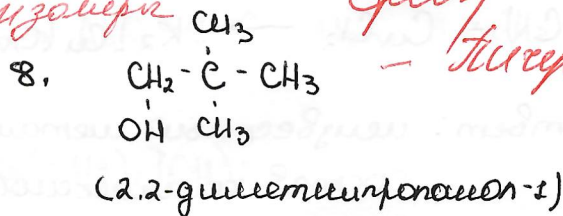 изомеры
CH3
8. CH2 - C - CH3 -
OH CH3
(2,2-диметилпропанол-1)